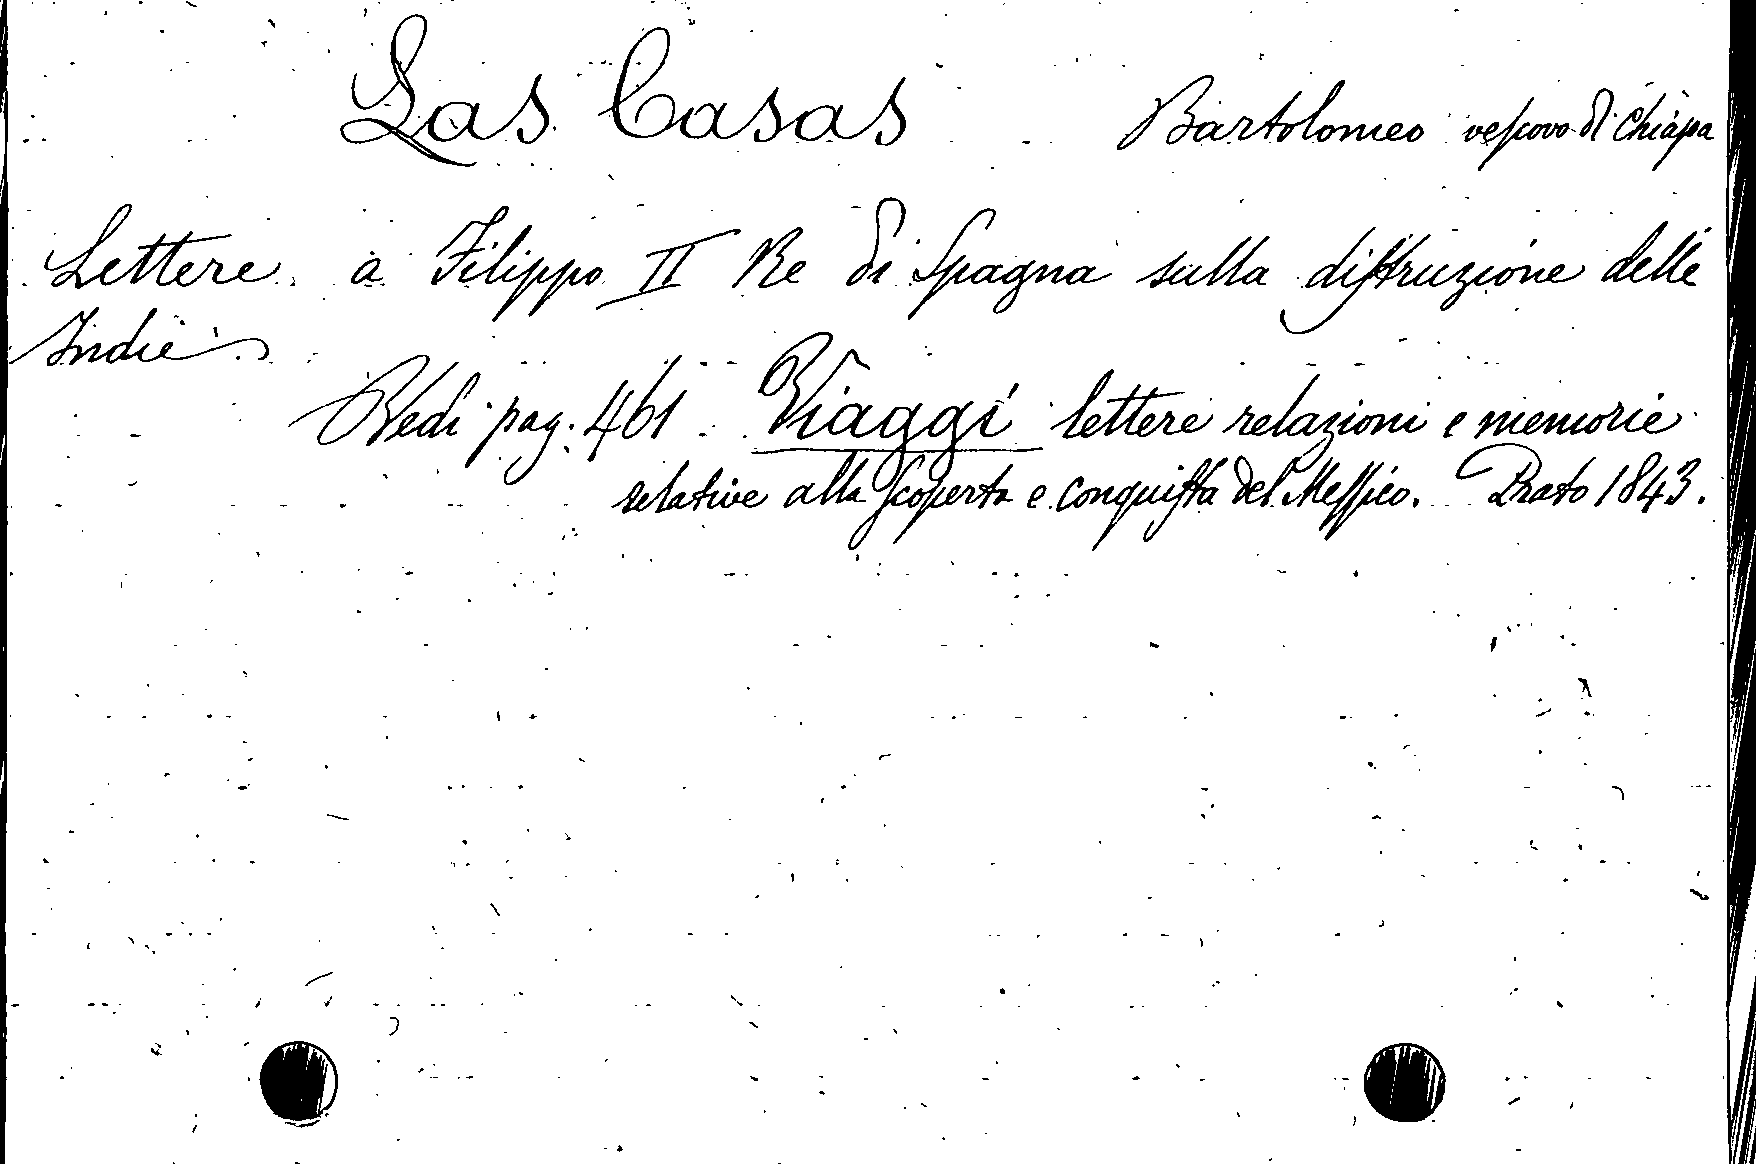 Las Casas Bartolomeo vescovo di Chiapa
Lettere a Filippo II Re di Spagna sulla distruzione delle
Indie
Vedi pag. 461 Viaggi lettere relazioni e memorie
relative alla scoperta e conquista del Messico. Prato 1843.